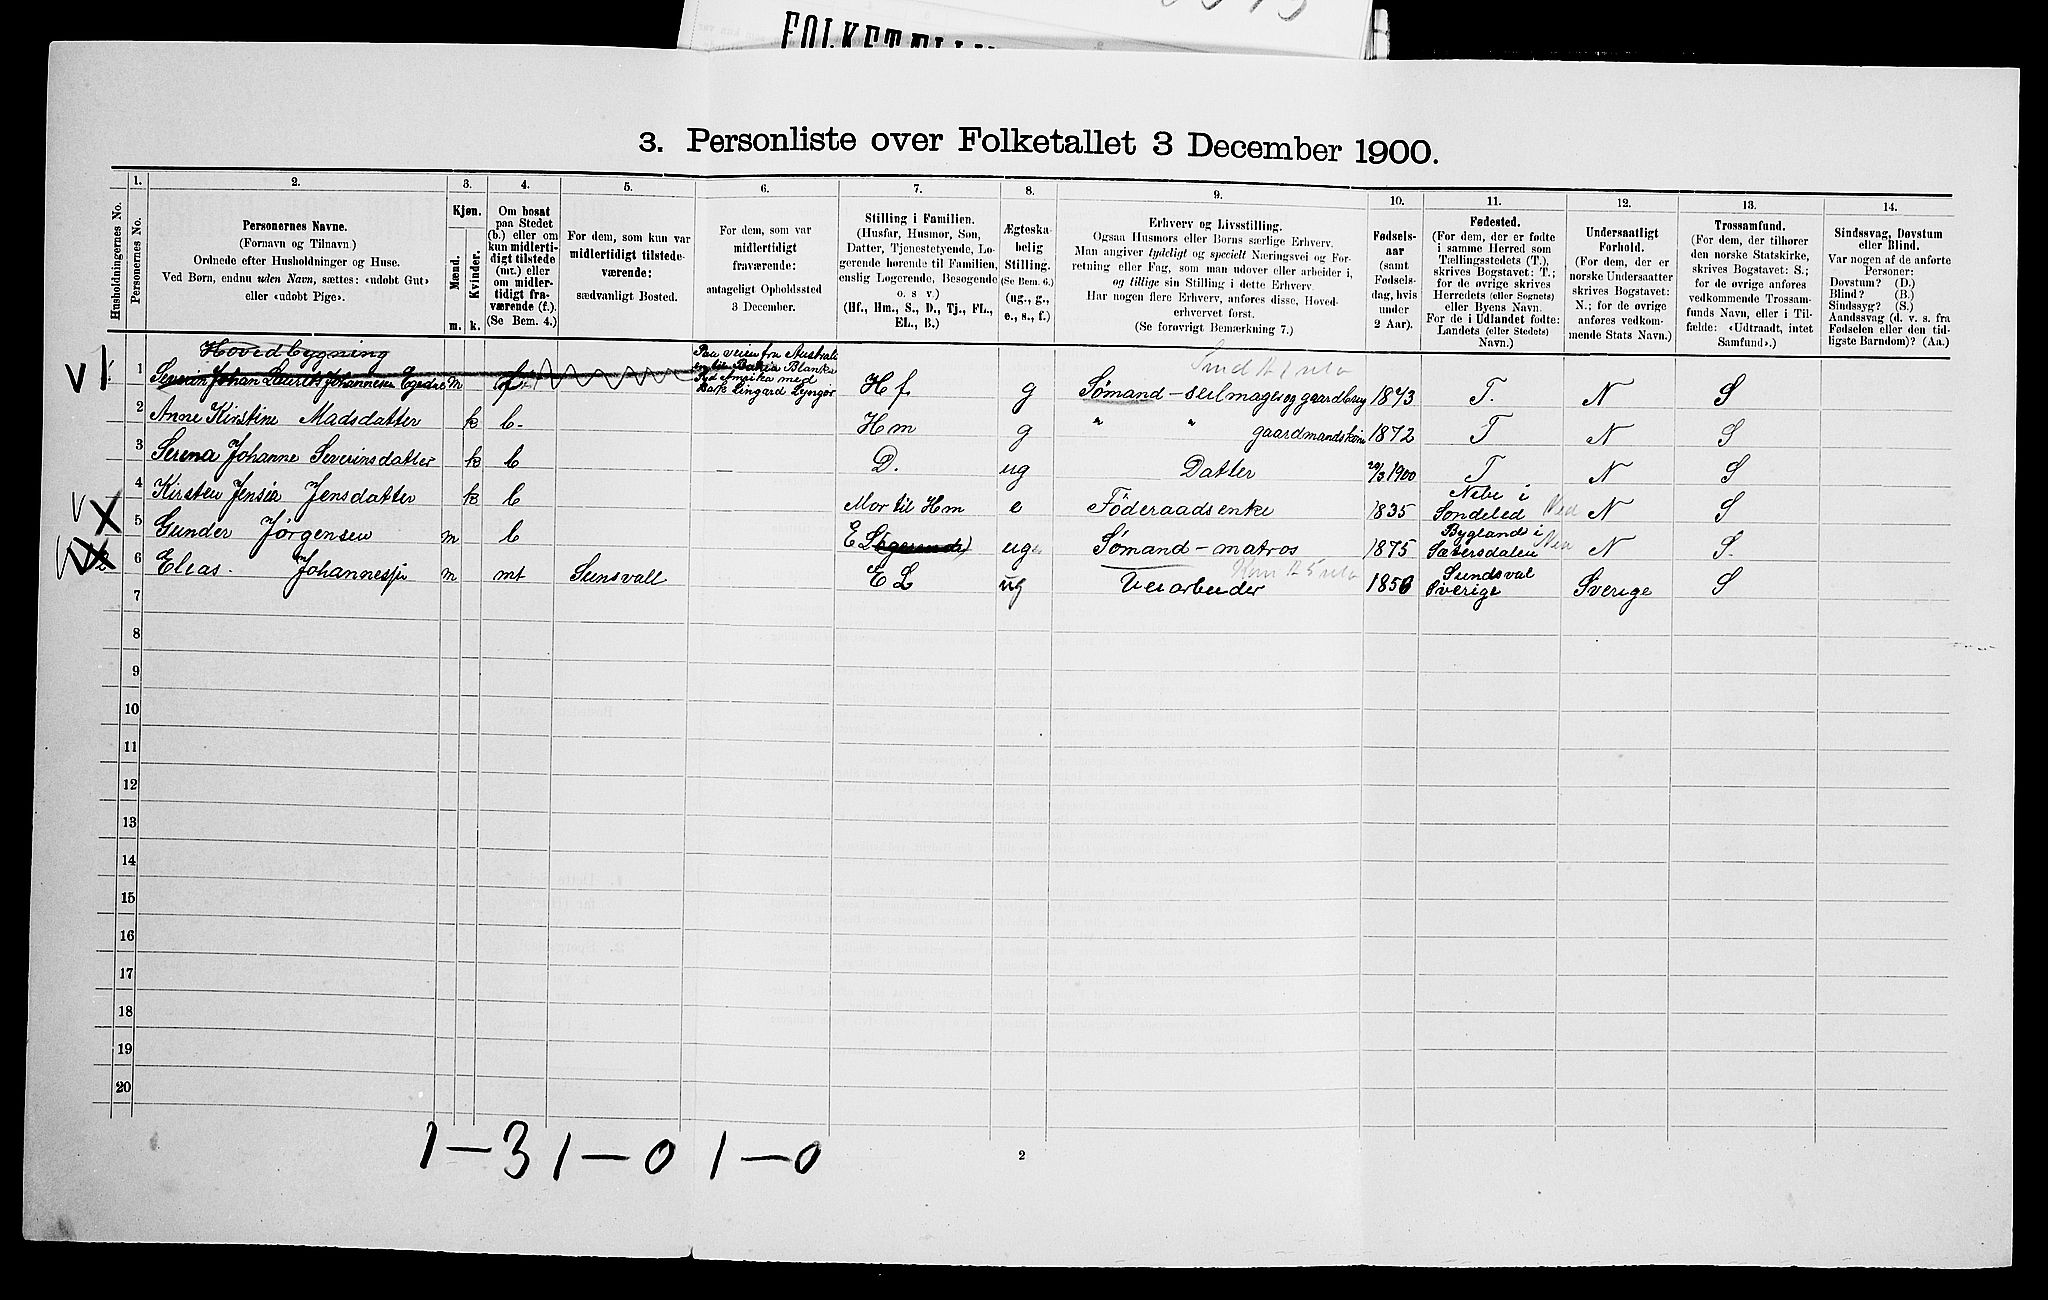 FOLKETÆLLI
3. Personliste over Folketallet 3 December 1900.
Husholdningernes No.
1.
Personernes No.
2.
Personernes Navne.
(Fornavn og Tilnavn.)
Ordnede efter Husholdninger og Huse.
Ved Børn, endnu uden Navn, sættes: «udøbt Gut»
eller «udøbt Pige».
3.
Kjøn.
Mænd.
Kvinder.
m.
k.
4.
Om bosat
paa Stedet
(b.) eller om
kun midlerti-
digt tilstede
(mt.) eller
om midler-
tidigt fra-
værende (f.).
(Se Bem. 4.)
5.
For dem, som kun var
midlertidigt tilstede-
værende:
sædvanligt Bosted.
6.
For dem, som var
midlertidigt
fraværende:
antageligt Opholdssted
3 December.
7.
Stilling i Familien.
(Husfar, Husmor, Søn,
Datter, Tjenestetyende, Lo-
gerende hørende til Familien,
enslig Logerende, Besøgende
o. s. v.)
(Hf., Hm., S., D., Tj., FL.,
EL., B.)
8.
Ægteska-
belig
Stilling.
(Se Bem. 6.)
(ug., g.,
e., s., f.)
9.
Erhverv og Livsstilling.
Ogsaa Husmors eller Børns særlige Erhverv.
Man angiver tydeligt og specielt Næringsvei og For-
retning eller Fag, som man udøver eller arbeider i,
og tillige sin Stilling i dette Erhverv.
Har nogen flere Erhverv, anføres disse, Hoved-
erhvervet først.
(Se forøvrigt Bemærkning 7.)
10.
Fødsels-
aar
(samt
Fødsels-
dag, hvis
under
2 Aar).
11.
Fødested.
(For dem, der er fødte
i samme Herred som
Tællingsstedets (T.),
skrives Bogstavet: T.;
for de øvrige skrives
Herredets (eller Sognets)
eller Byens Navn.
For de i Udlandet fødte:
Landets (eller Stedets)
Navn.)
12.
Undersaatligt
Forhold.
(For dem, der er
norske Undersaatter
skrives Bogstavet:
N.; for de øvrige
anføres vedkom-
mende Stats Navn.)
13.
Trossamfund.
(For dem, der tilhører
den norske Statskirke,
skrives Bogstavet: S.;
for de øvrige anføres
vedkommende Trossam-
funds Navn, eller i Til-
fælde: «Udtraadt, intet
Samfund».)
14.
Sindssvag, Døvstum
eller Blind.
Var nogen af de anførte
Personer:
Døvstum? (D.)
Blind? (B.)
Sindssyg? (S.)
Aandssvag (d. v. s. fra
Fødselen eller den tid-
ligste Barndom)? (Aa.)
Hovedbygning
1 Severin Johan Laurits Johannesen Egedre m f Paa veien fra Australi
en til Bahia Blanka
Syd Amerika med
Bark Lingard Lyngør H f g Sømand - seilmager og gaardbrug 1873 T. N S
2 Anne Kirstine Madsdatter k b - H m g " " gaardmandskone 1872 T N S
3 Serena Johanne Severinsdatter k b D. ug Datter 29/3 1900 T N S
4 Kirsten Jensia Jensdatter k b Mor til Hm e Föderaadsenke 1835 Nibe i
Søndeled N S
5 Gunder Jørgensen m b E Logerende) ug Sømand - matros 1875 Byglands i
Sætersdalen N S.
6 Elias. Johannesjø m mt Sunsvall E L ug Veiarbeider 1856 Sundsval
Sverige Sverige S
7
8
9
10
11
12
13
14
15
16
17
18
19
20
1 - 3 1 - 0 1 - 0
2